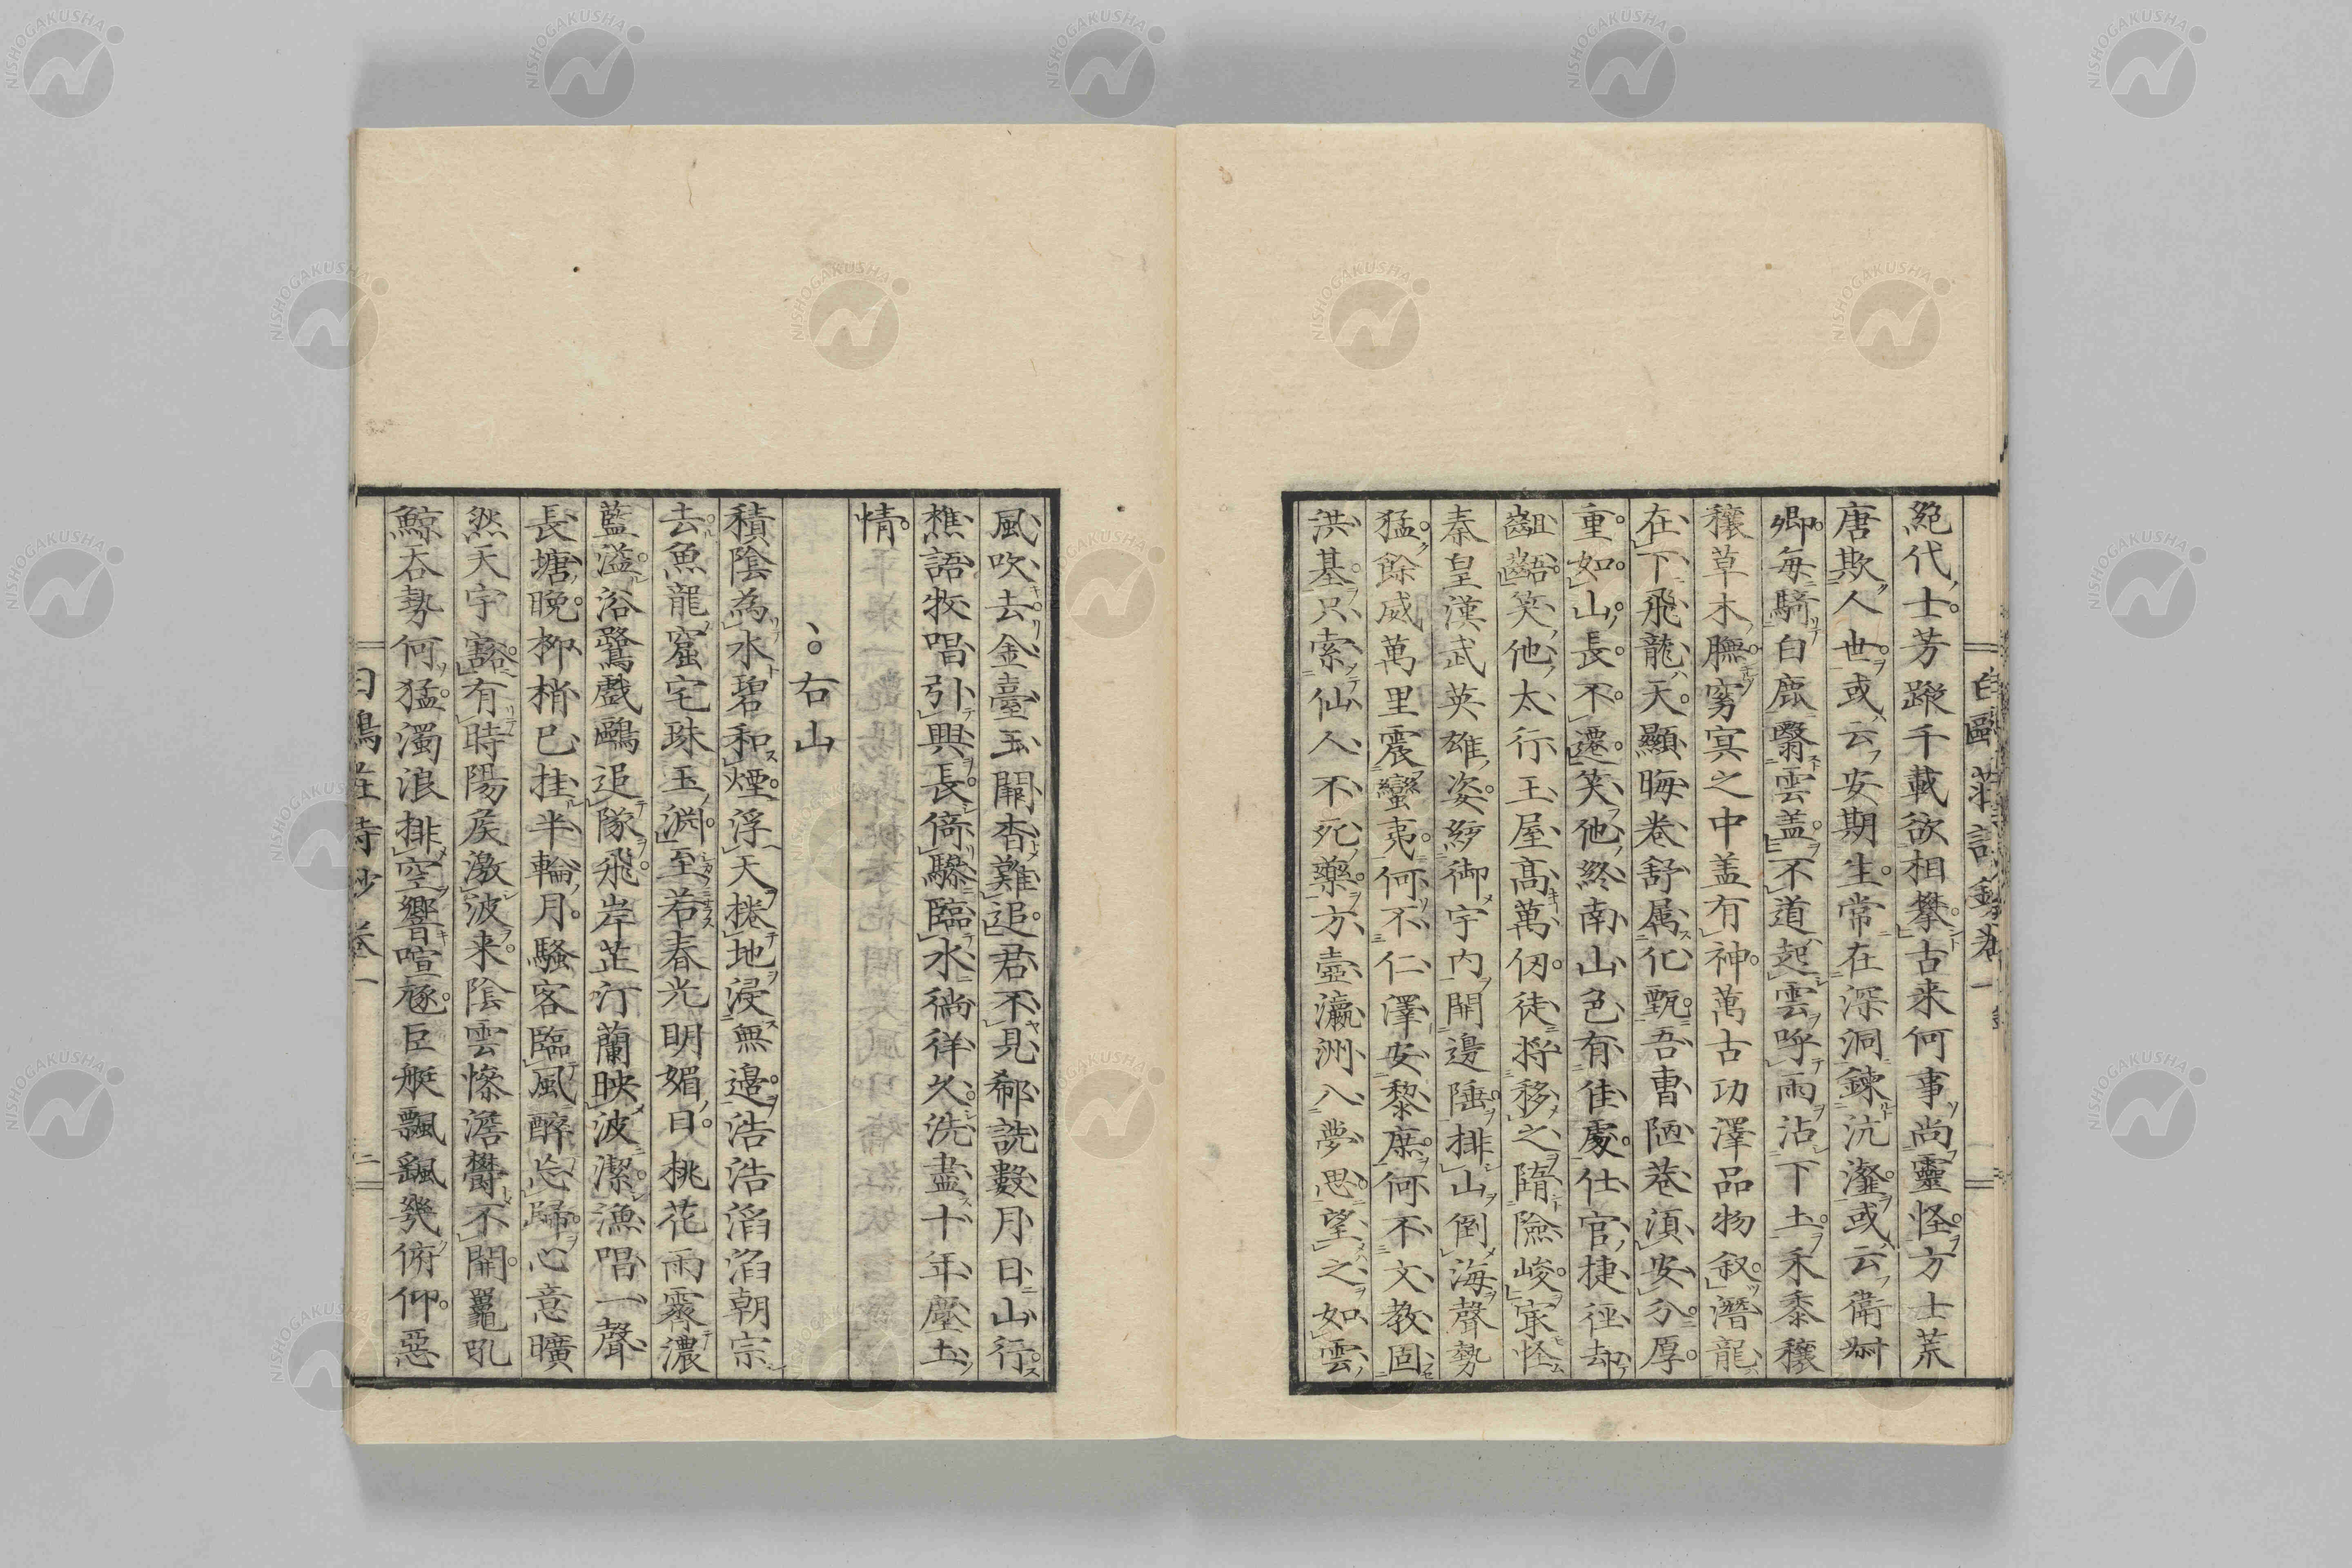 絶代士芳蹤千載欲相攀古来何事尚靈怪方士荒
唐欺人世或云安期生常在深洞鍊沆瀣或云衛叔
卿毎騎白鹿翳雲盖不道起雲呼雨沾下土禾黍穰
穰草木臕窈冥之中盖有神萬古功澤品物叙潛龍
在下飛龍天顯晦卷舒属化甄吾曹陋巷湏安分厚
重如山長不遷笑他終南山色有佳處仕官捷徑却
齟齬笑他太行王屋高萬仞徒将移之隋險峻㝡怪
秦皇漢武英雄姿統御宇内開邊陲排山倒海聲勢
猛餘威萬里震蠻夷何不仁澤安黎庶何不文教固
洪基只索仙人不死藥方壺瀛洲入夢思望之如雲
風吹去金臺玉闕杳難追君不見郗詵數月日山行
樵語牧唱引興長倚驂臨水徜徉久洗盡十年塵土
情
右山
積陰為水碧和煙浮天捲地浸無邊浩浩滔滔朝宗
去魚龍窟宅珠玉淵至若春光明媚日桃花雨霽濃
藍溢浴鷺戯鷗追隊飛岸芷汀蘭映波潔漁唱一聲
長塘晩柳梢已挂半輪月騷客臨風醉忘歸心意曠
然天宇豁有時陽侯激波来陰雲惨澹欝不開鼉吼
鯨吞勢何猛濁浪排空響喧豗巨艇飄颻幾俯仰惡
白鷗莊詩鈔卷一
二